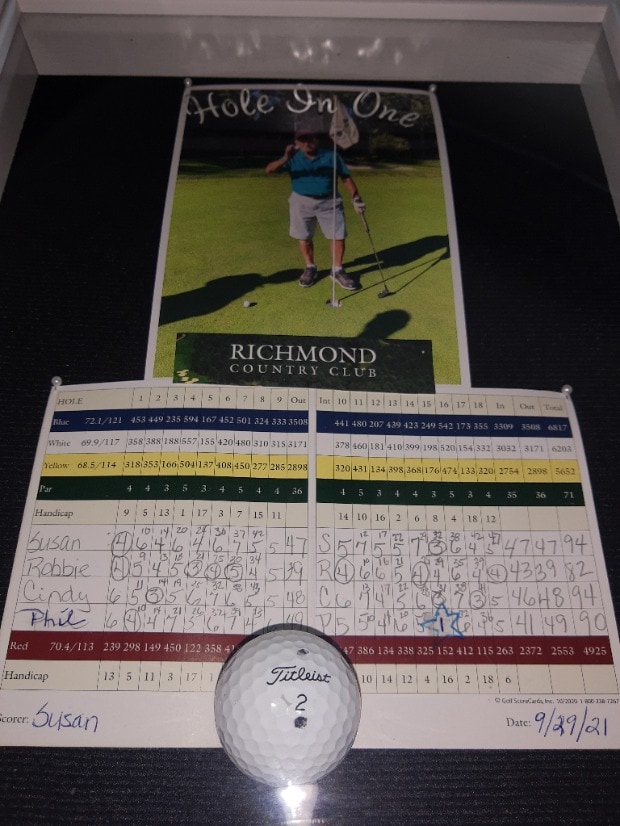 Hole In One
RICHMOND
COUNTRY CLUB
HOLE 1 2 3 4 5 6 7 8 9 Out Int 10 11 12 13 14 15 16 17 18 In Out Total
Blue 72.1/121 453 449 235 594 167 452 501 324 333 3508 441 480 207 439 423 249 542 173 355 3309 3508 6817
White 69.9/117 358 388 188 557 155 420 480 310 315 3171 378 460 181 410 399 198 520 154 332 3032 3171 6203
Yellow 68.5/114 318 353 166 504 137 408 450 277 285 2898 320 431 134 398 368 176 474 133 320 2754 2898 5652
Par 4 4 3 5 3 4 5 4 4 36 4 5 3 4 4 3 5 3 4 35 36 71
Handicap 9 5 13 1 17 3 7 15 11 14 10 16 2 6 8 4 18 12
Susan 4 6 4 6 4 6 7 5 5 47 S 5 7 5 5 7 3 6 4 5 47 47 94
Robbie 4 5 4 5 3 4 5 5 39 R 4 6 6 5 4 4 6 4 4 43 39 82
Cindy 6 5 3 5 6 5 48 C 6 3 5 46 48 94
Phil 6 4 4 7 5 6 7 4 49 P 5 5 4 6 5 1 6 4 5 41 49 90
Red 70.4/113 239 298 149 450 122 358 47 386 134 338 325 152 412 115 263 2372 2553 4925
Handicap 13 5 11 3 17 1 10 14 12 4 16 2 18 6
© Golf ScoreCards, Inc. 10/2020 1-800-238-7267
Scorer: Susan Date: 9/29/21
Titleist
2